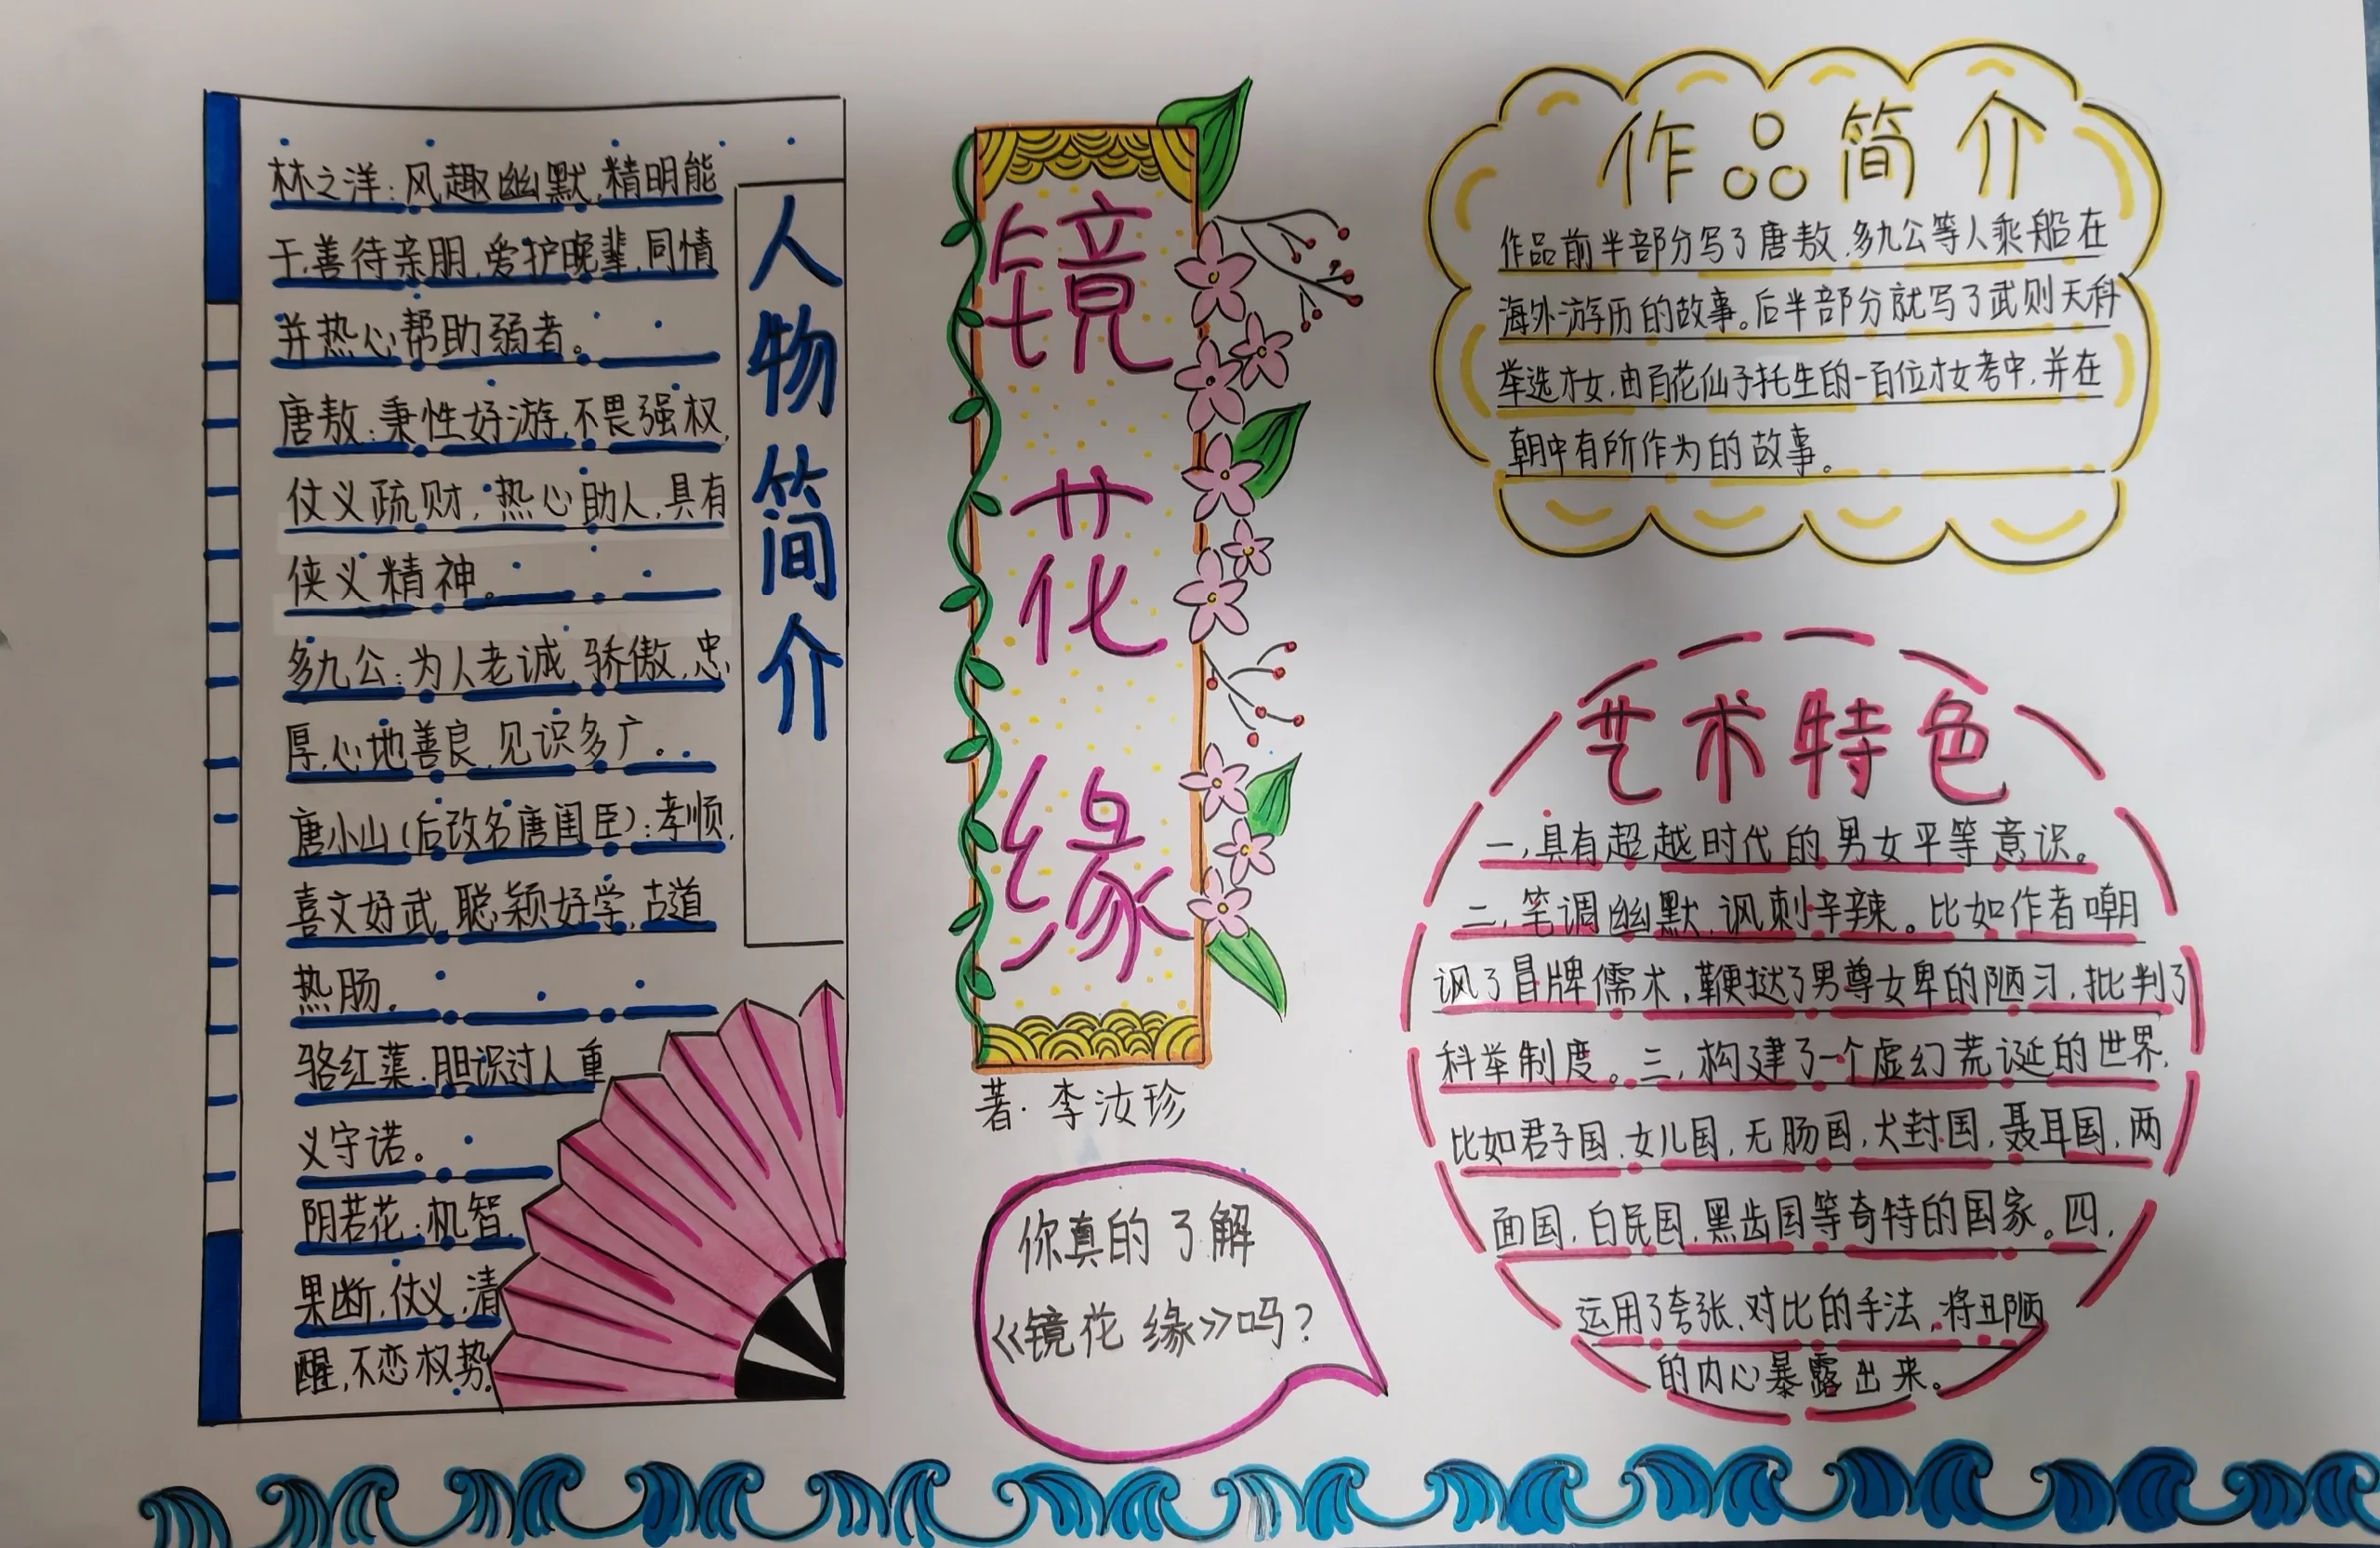 人物简介
林之洋：风趣幽默，精明能
干，善待亲朋，爱护晚辈，同情
并热心帮助弱者。
唐敖：秉性好游，不畏强权，
仗义疏财，热心助人，具有
侠义精神。
多九公：为人老诚，骄傲，忠
厚，心地善良，见识多广。
唐小山（后改名唐闺臣）：孝顺，
喜文好武，聪颖好学，古道
热肠。
骆红蕖：胆识过人，重
义守诺。
阴若花：机智，
果断，仗义，清
醒，不恋权势。
镜花缘
著：李汝珍
你真的了解
《镜花缘》吗？
作品简介
作品前半部分写了唐敖、多九公等人乘船在
海外游历的故事。后半部分就写了武则天科
举选才女，由百花仙子托生的一百位才女考中，并在
朝中有所作为的故事。
艺术特色
一，具有超越时代的男女平等意识。
二，笔调幽默，讽刺辛辣。比如作者嘲
讽了冒牌儒术，鞭挞了男尊女卑的陋习，批判了
科举制度。三，构建了一个虚幻荒诞的世界，
比如君子国，女儿国，无肠国，犬封国，聂耳国，两
面国，白民国，黑齿国等奇特的国家。四，
运用了夸张、对比的手法，将丑陋
的内心暴露出来。